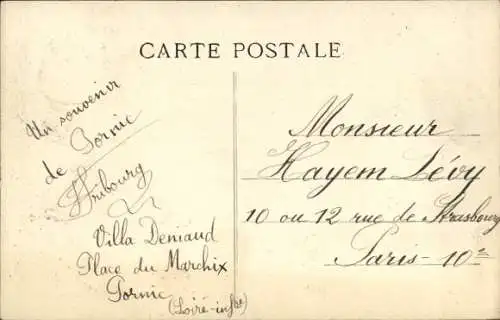 CARTE POSTALE
Un souvenir
de Pornic
Fribourg
Villa Deniaud
Place du Marchix
Pornic
(Loire-infre)
Monsieur
Hayem Lévy
10 ou 12 rue de Strasbourg
Paris - 10e